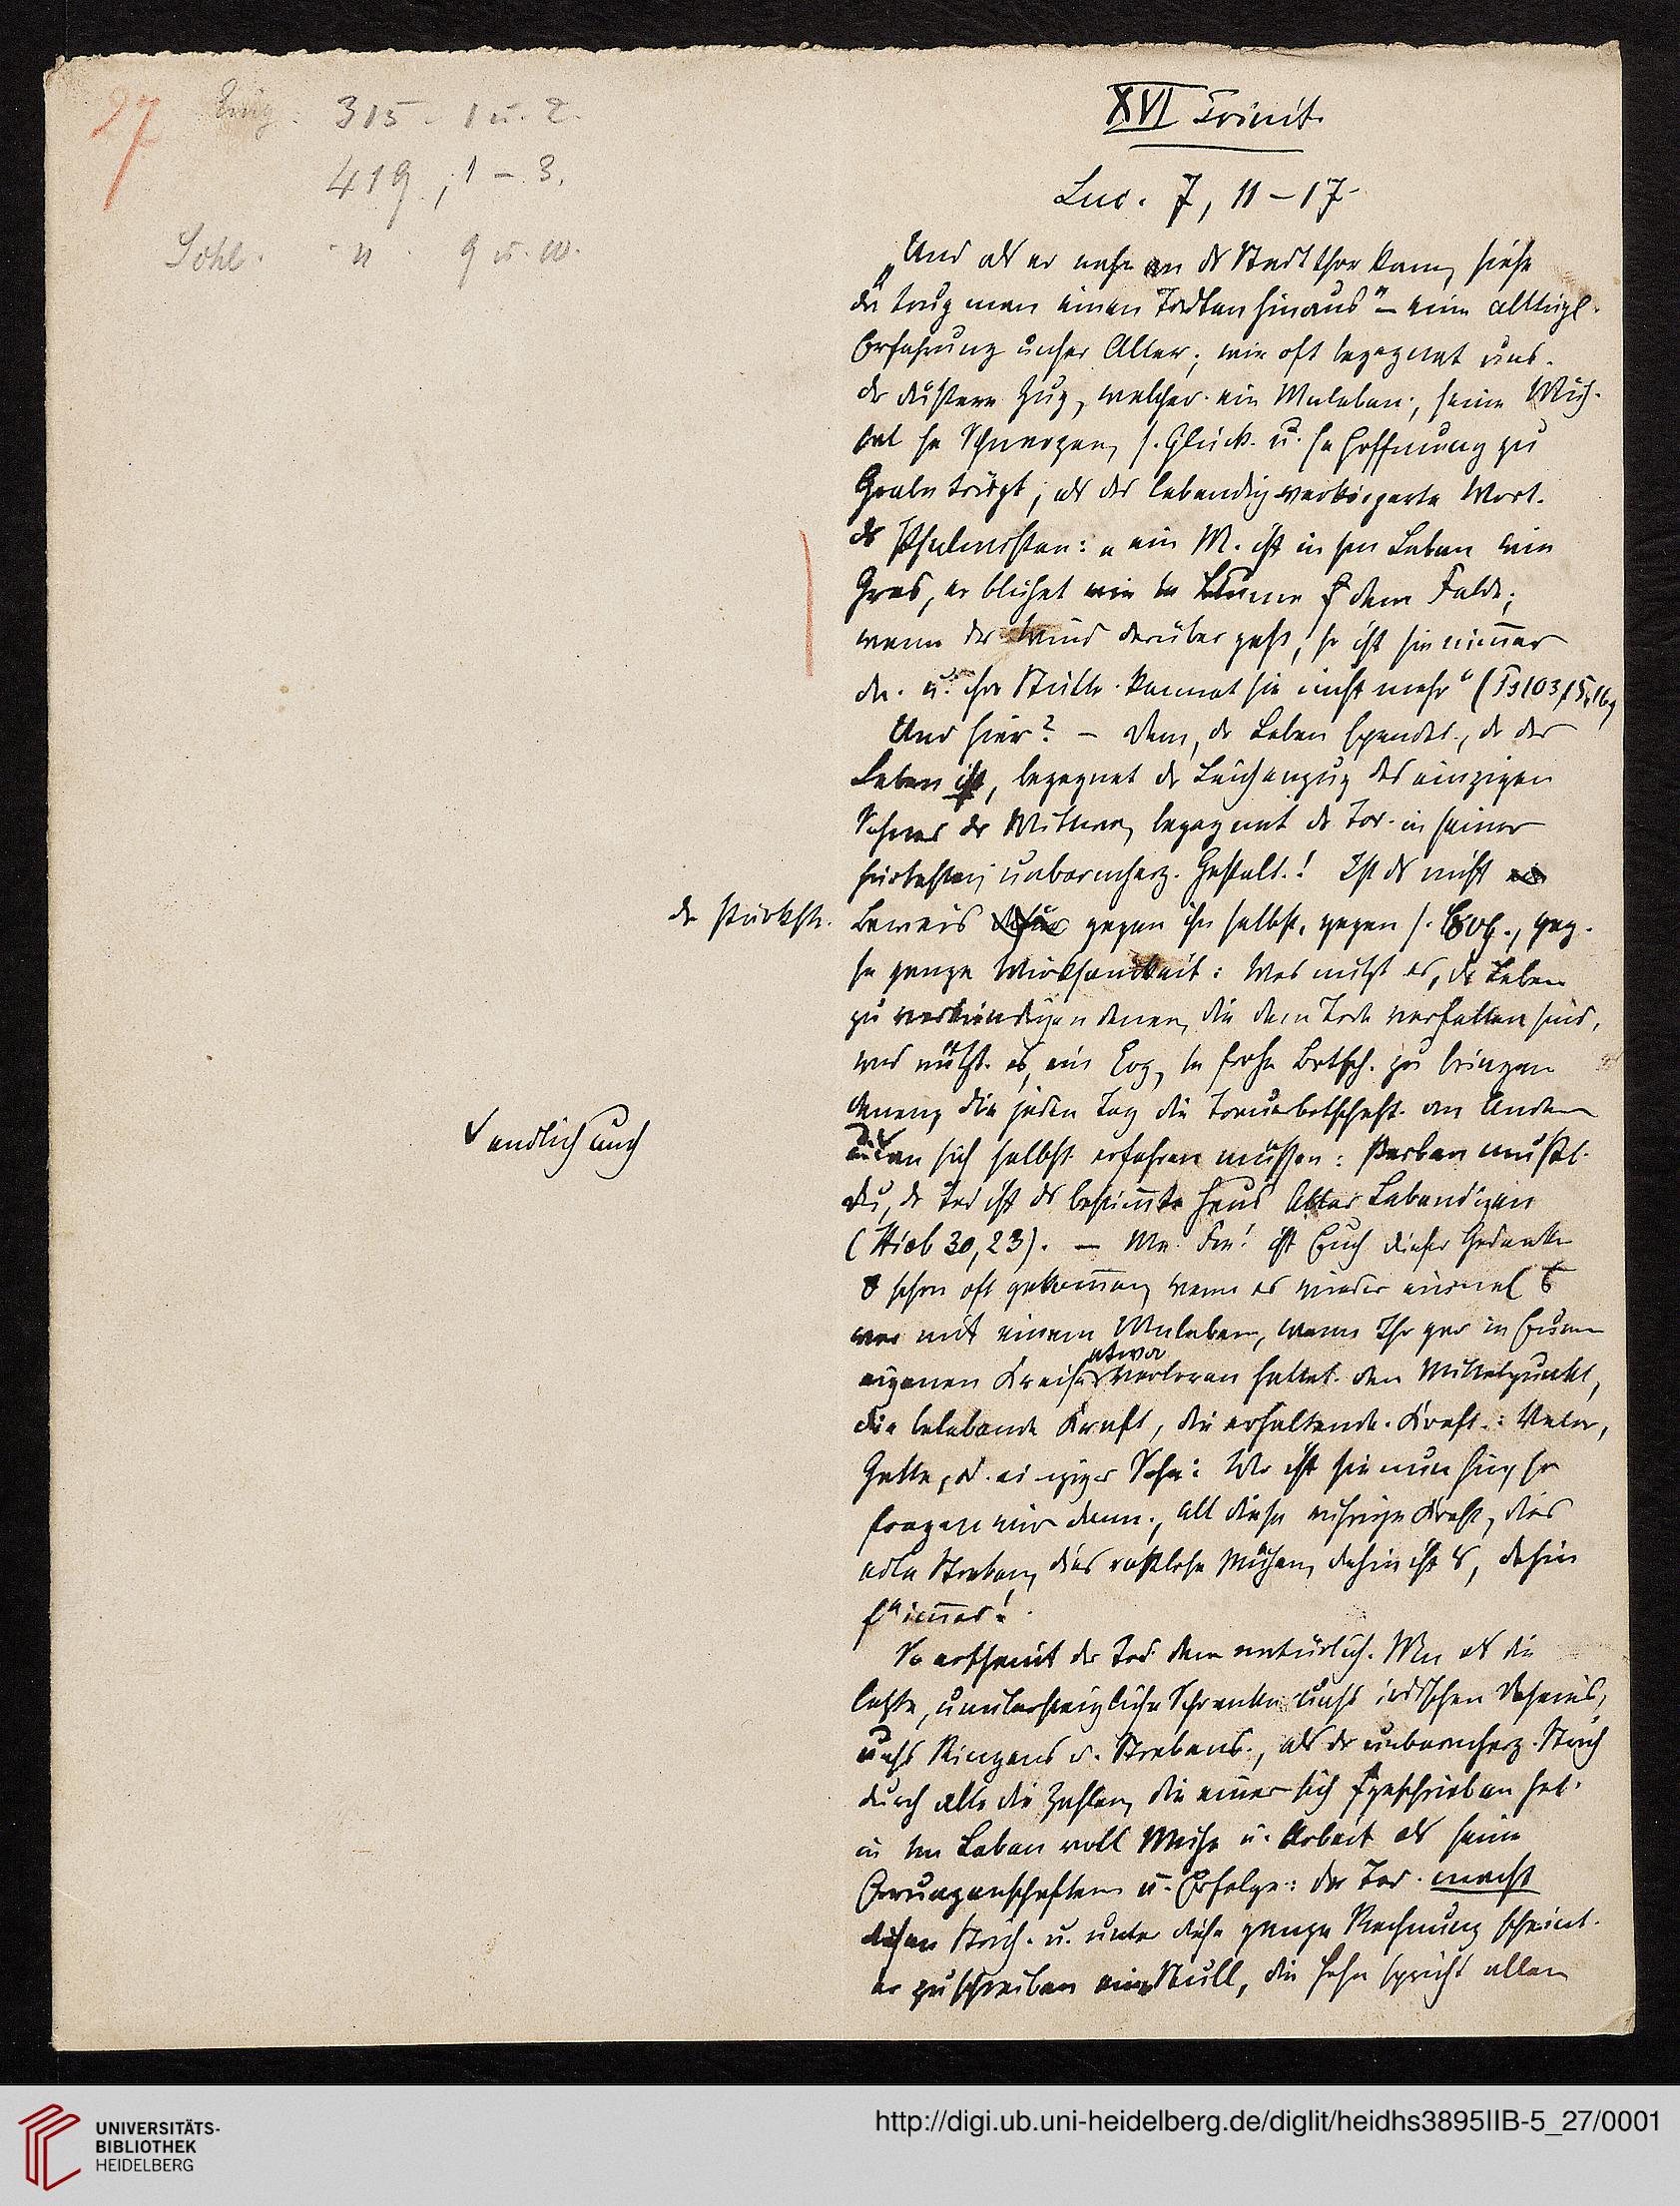 27
Eing: 315. 1 u. 2.
419, 1 – 3.
Schl. " 9 u. 10.
XVI Trinit.
Luc. 7, 11 – 17
„Und als er nahe an das Stadtthor kam, siehe
da trug man einen Todten hinaus" – eine alltägl.
Erfahrung unser Aller; wie oft begegnet uns.
der düstere Zug, welcher ein Mleben, seine
se Schmerzen, s. Glück u. se Hoffnung zu
Grabe trägt, als das lebendig verkörperte Wort.
des Psalmisten: „ein M. ist in sm Leben wie
Gras, er blühet wie e Blume f dem Felde;
wenn der Wind darüber geht, so ist sie nimmer
da. u. ihre Stätte kennet sie nicht mehr" (Ps 103, 15, 16)
Und hier? – Dem, der Leben spendet, der das
Leben ist, begegnet der Leichenzug des einzigen
Sohnes der Wittwe, begegnet der Tod in seiner
unbarmherz. Gestalt! Ist das nicht
der stärkste.
Beweis gegen ihn selbst, gegen s. Evg., geg.
se ganze Wirksamkeit: Was nützt es, das Leben
zu verkündigen denen, die dem Tode verfallen sind,
was nützt es, ein Evg, e frohe Botsch. zu bringen
denen, die jeden Tag die Trauerbotschaft an Andern
√ endlich auch
an sich selbst erfahren müssen: sterben mußt
du, der Tod ist das bestimmte Haus Aller Lebendigen
(Hiob 30, 23). – Me. Fre! ist Euch dieser Gedanke
schon oft gekommen, wenn es wieder einmal
war mit einem Mleben, wenn Ihr gar in Eurem
eigenen Kreise etwa verloren hattet den Mittelpunkt,
die belebende Kraft, die erhaltende Kraft: Vater,
Gatte, od. einziger Sohn: Wo ist sie nun hin, so
fragen wir dann, all diese Kraft, dies
edle Streben, dies rastlose Mühen, dahin ist es, dahin
immer!
So erscheint der Tod dem natürlich. Mn als die
letzte, unübersteigliche Schranke uns irdischen Daseins,
uns Ringens u. Strebens, als der unbarmherz. Strich
durch alle die Zahlen, die einer sich geschrieben hat
in em Leben voll Mühe u. Arbeit als seine
Errungenschaften u. Erfolge: der Tod macht
diesen Strich u. unter diese ganze Rechnung scheint
er zu schreiben eine Null, die Hohn spricht allem
UNIVERSITÄTS-
BIBLIOTHEK
HEIDELBERG
http://digi.ub.uni-heidelberg.de/diglit/heidhs3895IIB-5_27/0001